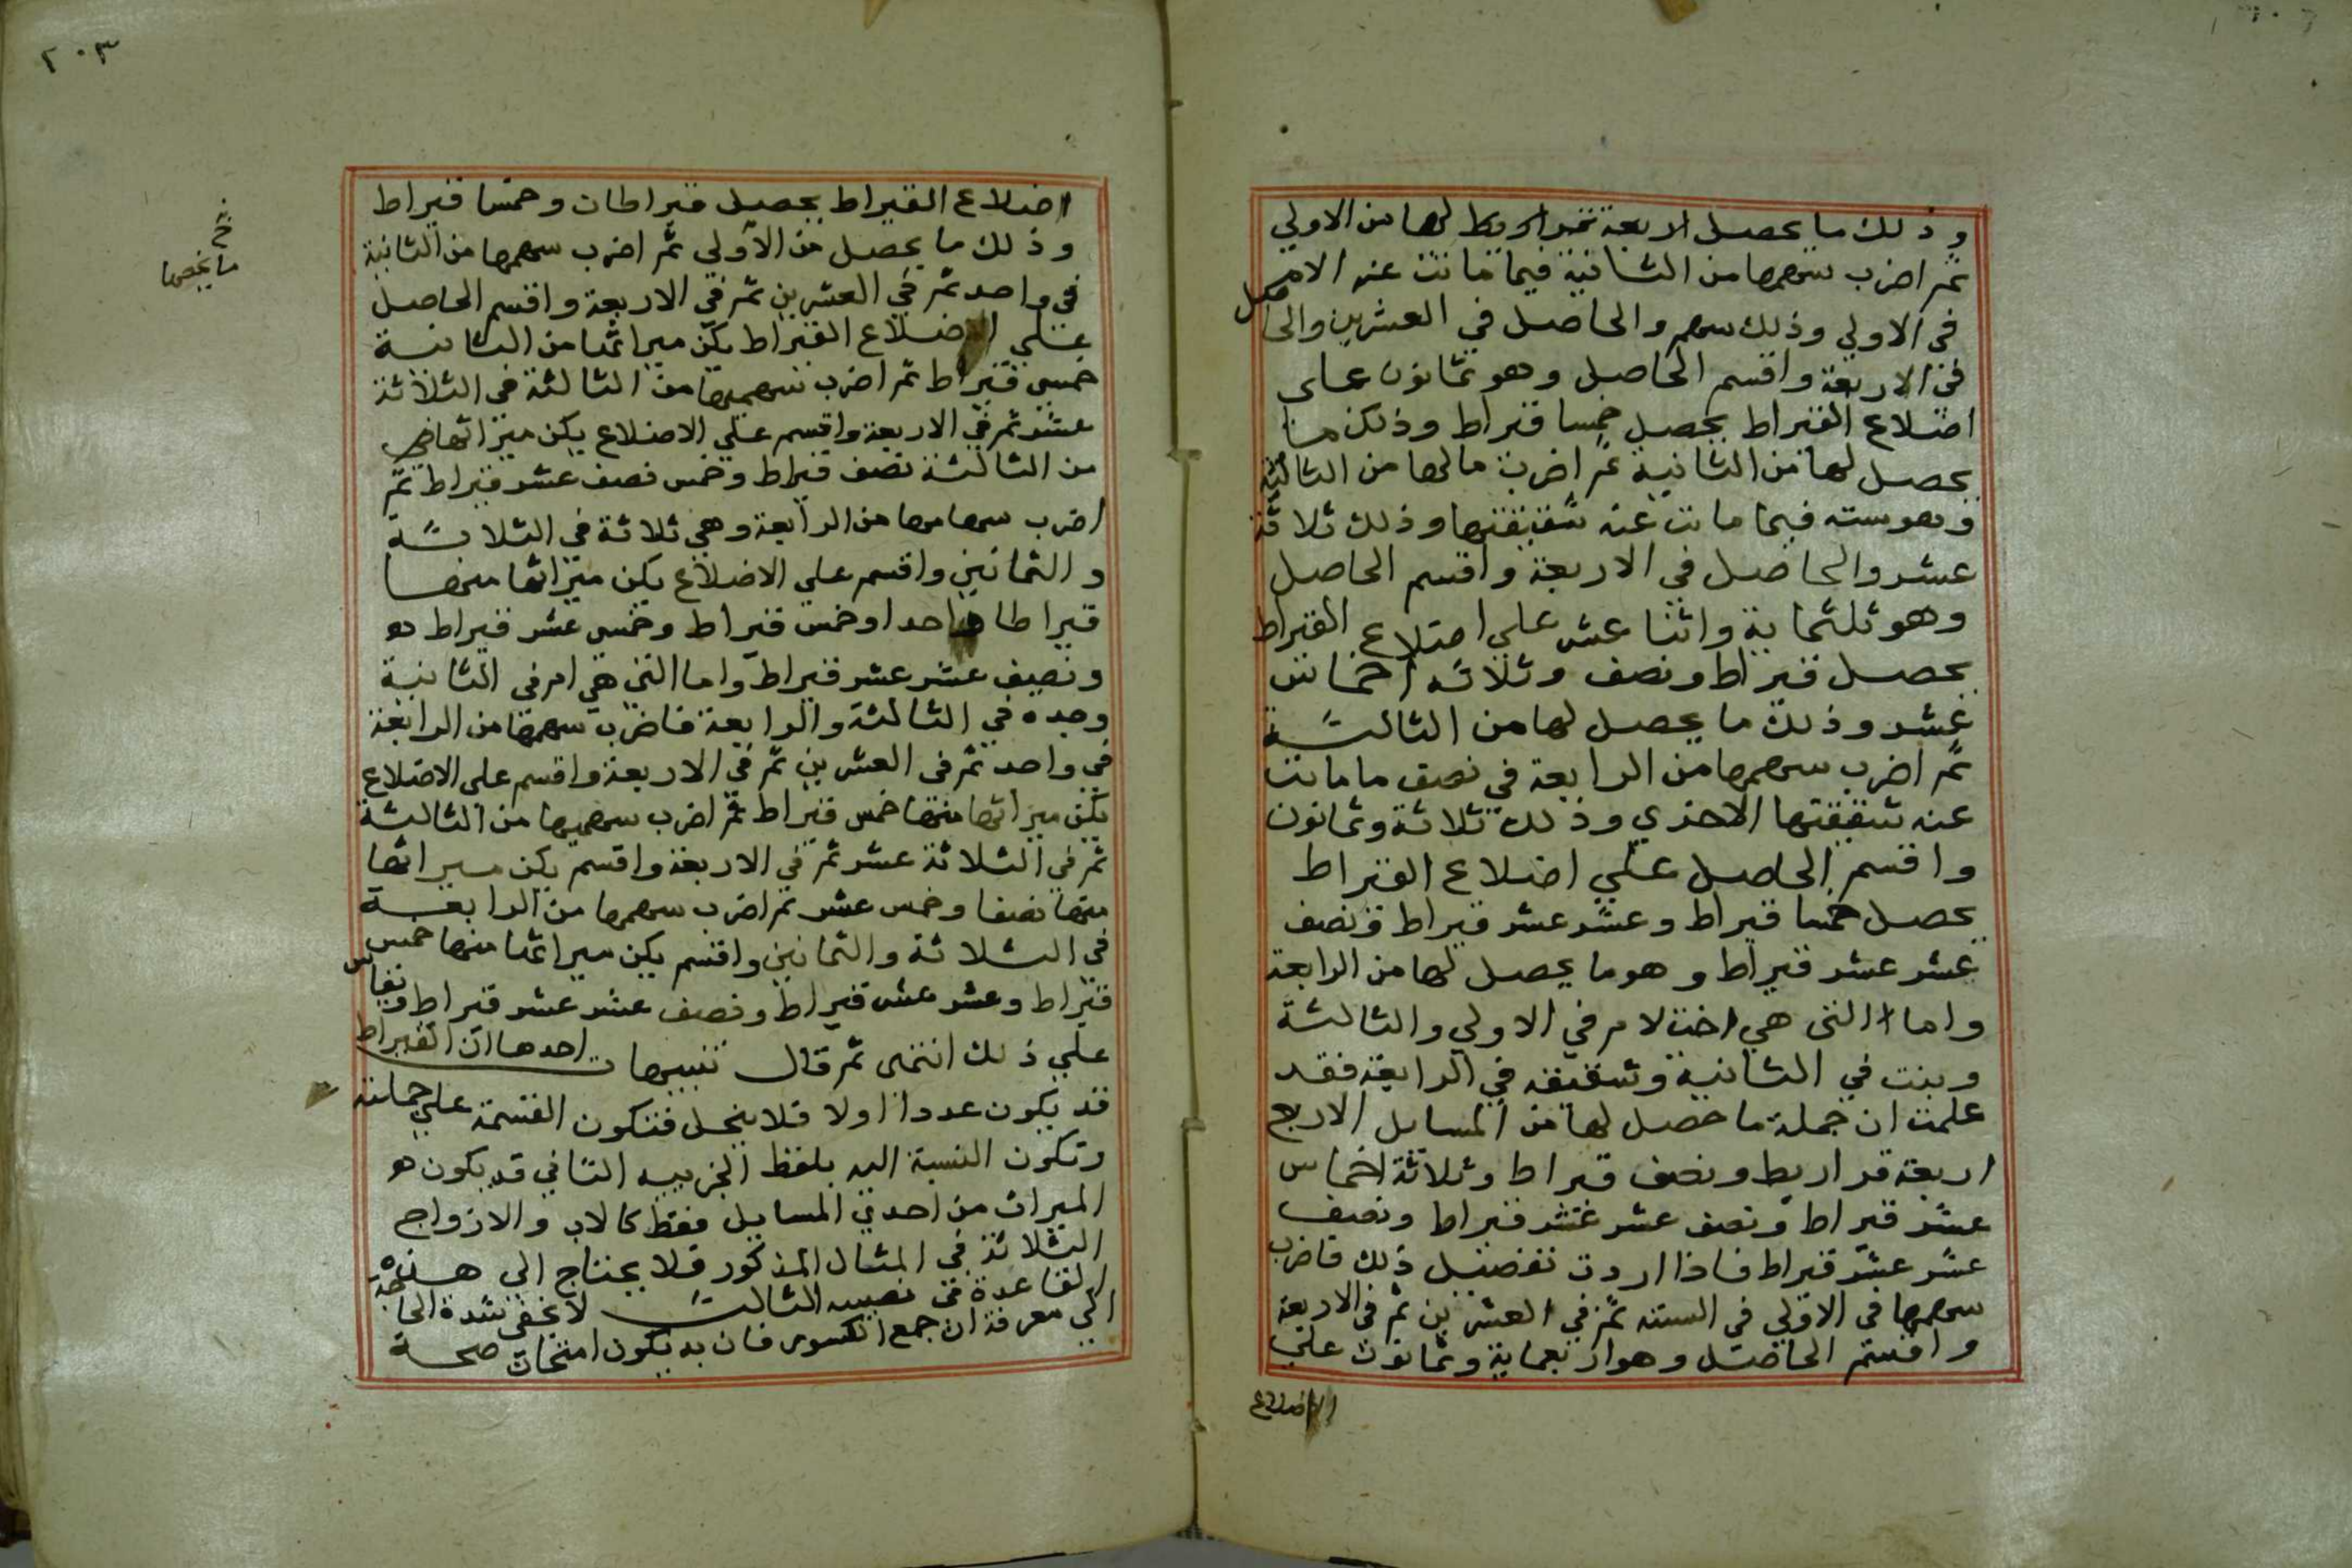 وذلك ما يحصل الاربعة قراريط لها من الاولي
ثم اضرب سهمها من الثانية فيما ماتت عنه الام
في الاولي وذلك سهم والحاصل في العشرين والحاصل
في الاربعة واقسم الحاصل وهو ثمانون على
اضلاع القيراط يحصل خمسا قيراط وذلك ما
يحصل لها من الثانية ثم اضرب مالها من الثالثة
وهو سته فيما ماتت عنه شقيقتها وذلك ثلاثة
عشر والحاصل في الاربعة واقسم الحاصل
وهو ثلثماية واثنا عشر علي اضلاع القيراط
يحصل قيراط ونصف وثلاثه اخماس
عشر وذلك ما يحصل لها من الثالثة
ثم اضرب سهمها من الرابعة في نصف ما ماتت
عنه شقيقتها الاخري وذلك ثلاثة وثمانون
واقسم الحاصل علي اضلاع القيراط
يحصل خمسا قيراط وعشر عشر قيراط ونصف
عشر عشر قيراط وهو ما يحصل لها من الرابعة
واما التي هي اخت لام في الاولي والثالثة
وبنت في الثانية وشقيقه في الرابعة فقد
علمت ان جملة ما حصل لها من المسايل الاربع
اربعة قراريط ونصف قيراط وثلاثة اخماس
عشر قيراط ونصف عشر عشر قيراط ونصف
عشر عشر قيراط فاذا اردت تفصيل ذلك فاضرب
سهمها في الاولي في السته ثم في العشرين ثم في الاربعة
واقسم الحاصل وهو اربعماية وثمانون علي
الاضلاع
٢٠٣
اضلاع القيراط يحصل قيراطان وخمسا قيراط
وذلك ما يحصل من الاولي ثم اضرب سهمها من الثانية
في واحد ثم في العشرين ثم في الاربعة واقسم الحاصل
علي اضلاع القيراط يكن ميراثها من الثانية
خمس قيراط ثم اضرب سهميها من الثالثة في الثلاثة
عشر ثم في الاربعة واقسم علي الاضلاع يكن ميراثها
من الثالثة نصف قيراط وخمس نصف عشر قيراط ثم
اضرب سهامها من الرابعة وهي ثلاثة في الثلاثة
والثمانين واقسم علي الاضلاع يكن ميراثها منها
قيراطا واحدا وخمس قيراط وخمس عشر قيراط
ونصف عشر عشر قيراط واما التي هي ام في الثانية
وجده في الثالثة والرابعة فاضرب سهمها من الرابعة
في واحد ثم في العشرين ثم في الاربعة واقسم على الاضلاع
يكن ميراثها منها خمس قيراط ثم اضرب سهميها من الثالثة
ثم في الثلاثة عشر ثم في الاربعة واقسم يكن ميراثها
منها نصفا وخمس عشر ثم اضرب سهمها من الرابعة
في الثلاثة والثمانين واقسم يكن ميراثها منها خمس
قيراط وعشر عشر قيراط ونصف عشر عشر قيراط وتقاس
علي ذلك انتهى ثم قال تنبيهات احدها ان القيراط
قد يكون عددا اولا فلا ينحل فتكون القسمة علي جملته
وتكون النسبة اليه بلفظ الجزييه الثاني قد يكون
الميراث من احدي المسايل فقط كالاب والازواج
الثلاثة في المثال المذكور فلا يحتاج الي هذه
القاعدة في نصيبه الثالث لا يخفي شدة الحاجة
الي معرفة ان جمع الكسور فان به يكون امتحان صحة
ما يخصها